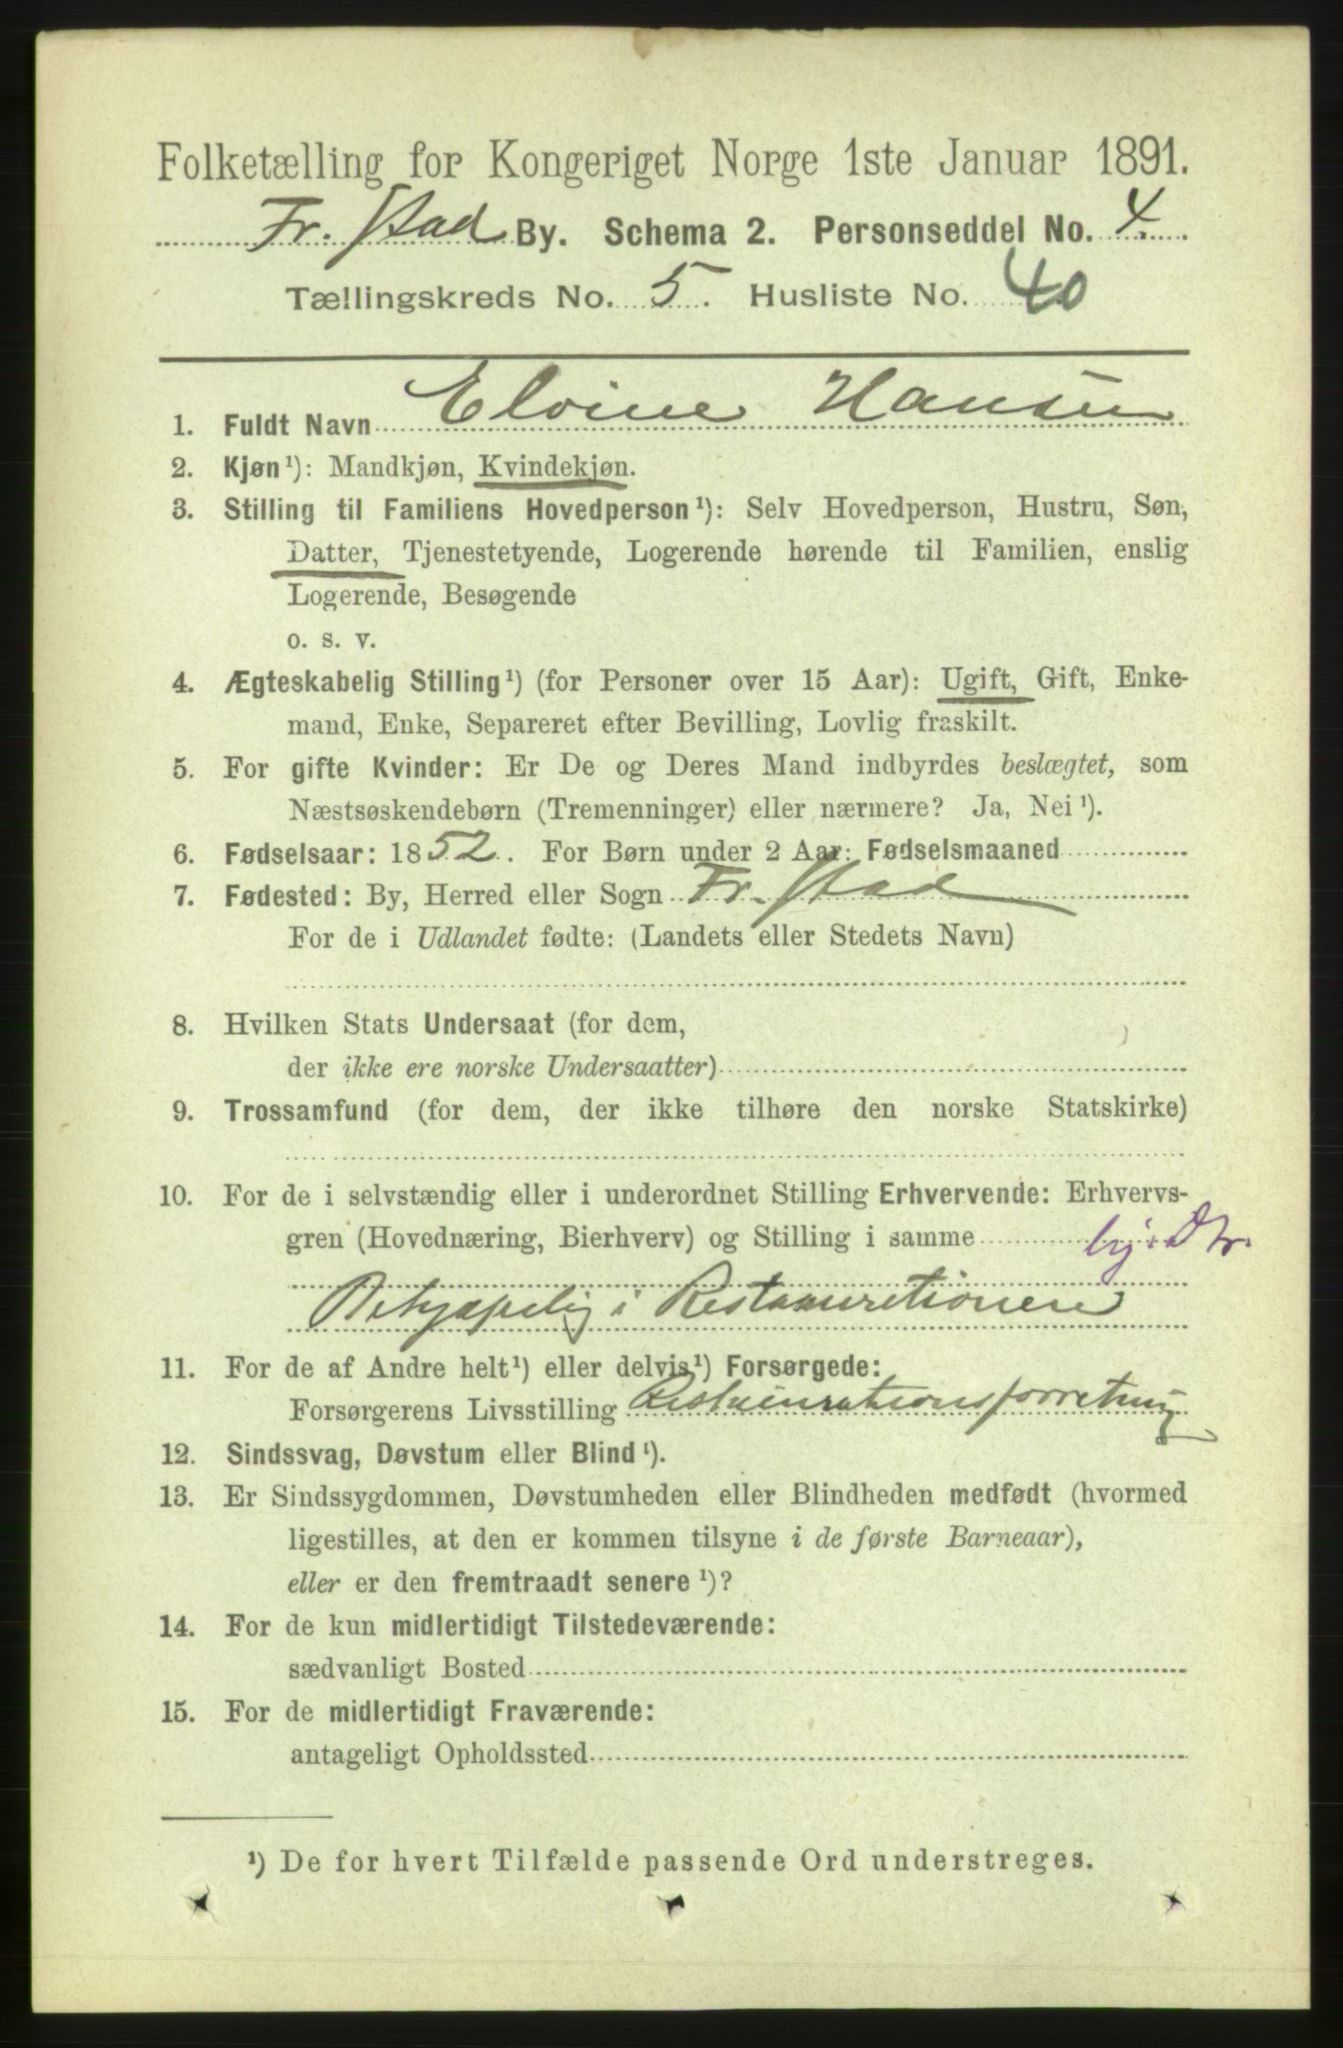 Folketælling for Kongeriget Norge 1ste Januar 1891.
Fr. stad By. Schema 2. Personseddel No. 4.
Tællingskreds No. 5. Husliste No. 40
1. Fuldt Navn Elvine Hansen
2. Kjøn¹): Mandkjøn, Kvindekjøn.
3. Stilling til Familiens Hovedperson¹): Selv Hovedperson, Hustru, Søn,
Datter, Tjenestetyende, Logerende hørende til Familien, enslig
Logerende, Besøgende
o. s. v.
4. Ægteskabelig Stilling¹) (for Personer over 15 Aar): Ugift, Gift, Enke-
mand, Enke, Separeret efter Bevilling, Lovlig fraskilt.
5. For gifte Kvinder: Er De og Deres Mand indbyrdes beslægtet, som
Næstsøskendebørn (Tremenninger) eller nærmere? Ja, Nei¹).
6. Fødselsaar: 1852. For Børn under 2 Aar: Fødselsmaaned
7. Fødested: By, Herred eller Sogn Fr. stad
For de i Udlandet fødte: (Landets eller Stedets Navn)
8. Hvilken Stats Undersaat (for dem,
der ikke ere norske Undersaatter)
9. Trossamfund (for dem, der ikke tilhøre den norske Statskirke)
10. For de i selvstændig eller i underordnet Stilling Erhvervende: Erhvervs-
gren (Hovednæring, Bierhverv) og Stilling i samme
Behjælpelig i Restaurationen
11. For de af Andre helt¹) eller delvis¹) Forsørgede:
Forsørgerens Livsstilling Restaurationsforretning
12. Sindssvag, Døvstum eller Blind¹).
13. Er Sindssygdommen, Døvstumheden eller Blindheden medfødt (hvormed
ligestilles, at den er kommen tilsyne i de første Barneaar),
eller er den fremtraadt senere¹)?
14. For de kun midlertidigt Tilstedeværende:
sædvanligt Bosted
15. For de midlertidigt Fraværende:
antageligt Opholdssted
¹) De for hvert Tilfælde passende Ord understreges.